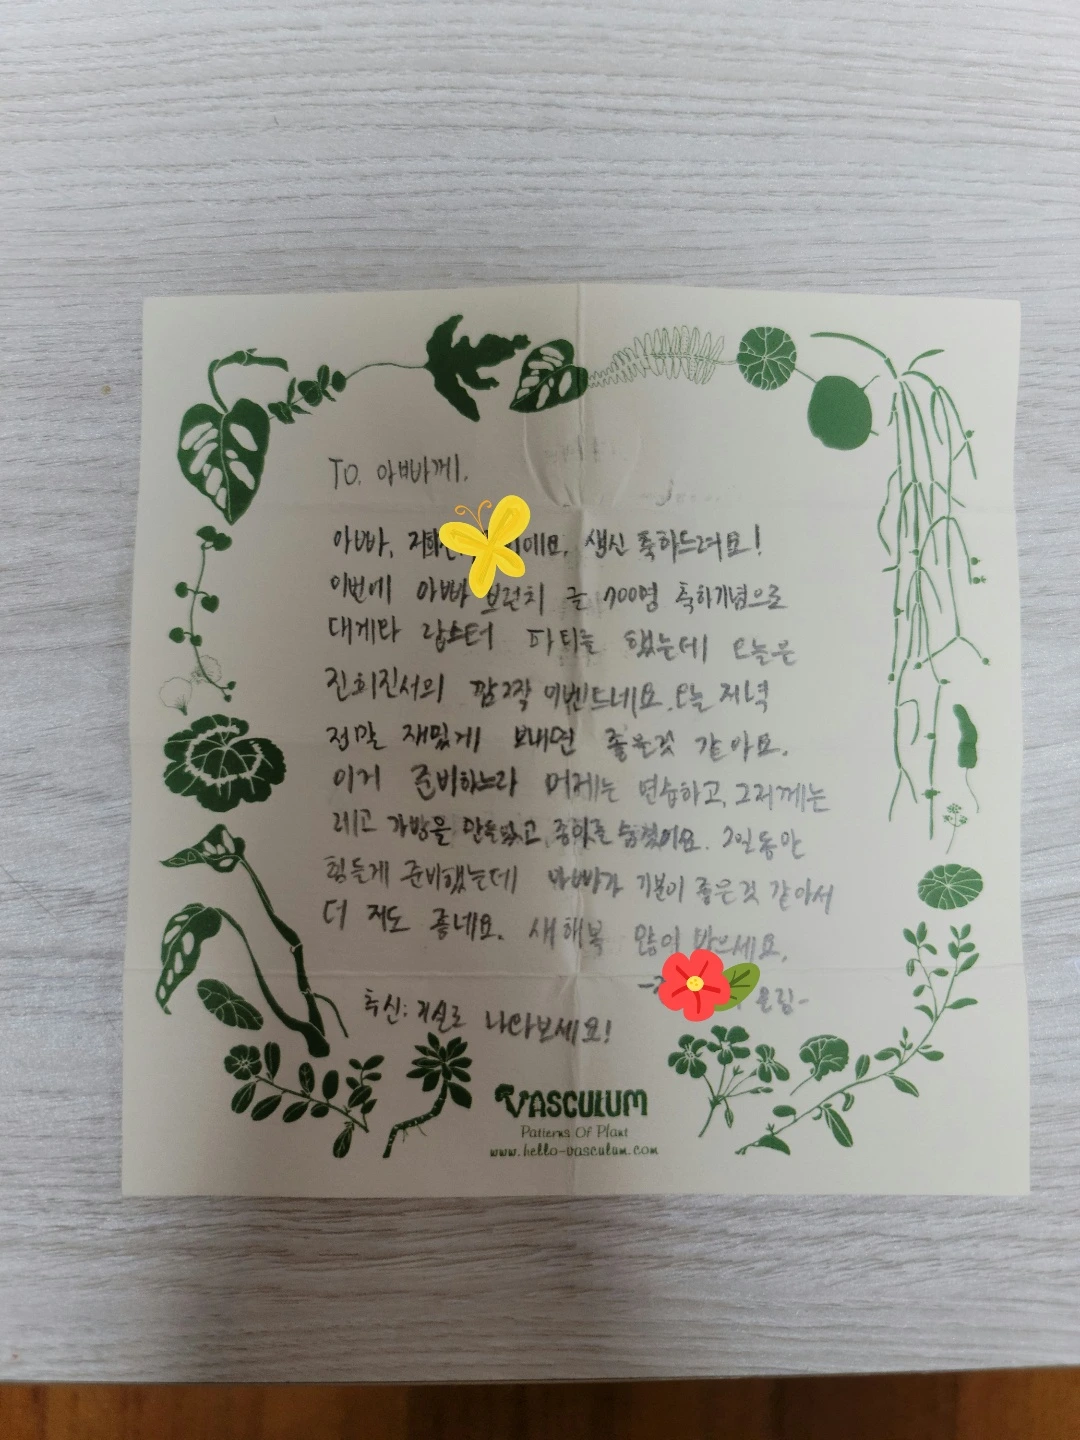 TO. 아빠께.
아빠, 저희 이에요. 생신 축하드려요!
이번에 아빠 브런치 글 700명 축하기념으로
대게와 랍스터 파티를 했는데 오늘은
진희진서의 깜짝 이벤트네요. 오늘 저녁
정말 재밌게 보내면 좋을것 같아요.
이거 준비하느라 어제는 연습하고, 그저께는
레고 가방을 만들었고, 종이를 숨겼어요. 2일동안
힘들게 준비했는데 아빠가 기분이 좋은것 같아서
더 저도 좋네요. 새해복 많이 받으세요.
올림-
추신: 거실로 나와보세요!
VASCULUM
Patterns Of Plant
www.hello-vasculum.com